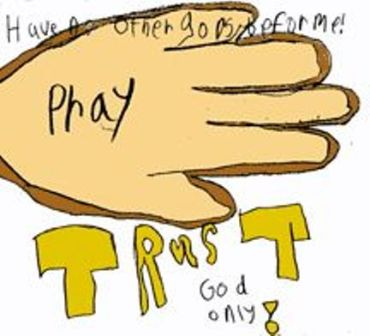 Have no other gods before me!
Pray
TRusT
God
only!